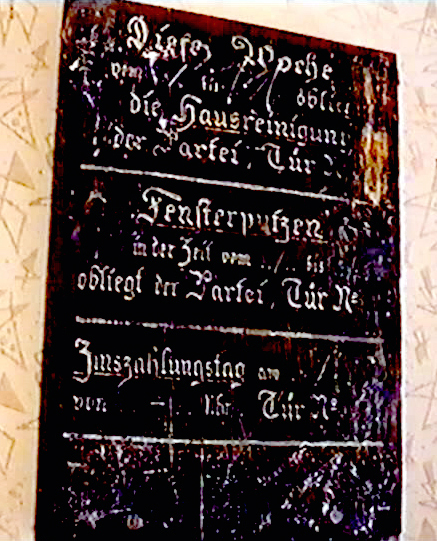 Diese Woche
vom / bis / obliegt
die Hausreinigung
der Partei, Tür N
Fensterputzen
in der Zeit vom / bis
obliegt der Partei, Tür Nº
Zinszahlungstag am /
von – Uhr Tür Nº